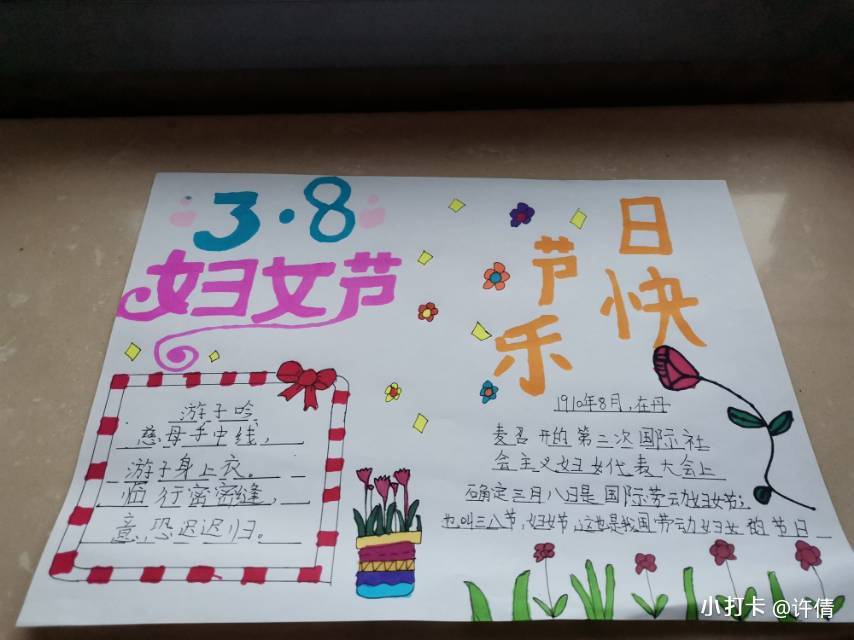 3·8
妇女节
节日快乐
游子吟
慈母手中线，
游子身上衣。
临行密密缝，
意恐迟迟归。
1910年8月，在丹
麦召开的第二次国际社
会主义妇女代表大会上
确定三月八日是国际劳动妇女节；
也叫三八节，妇女节，这也是我国劳动妇女的节日
小打卡 @许倩